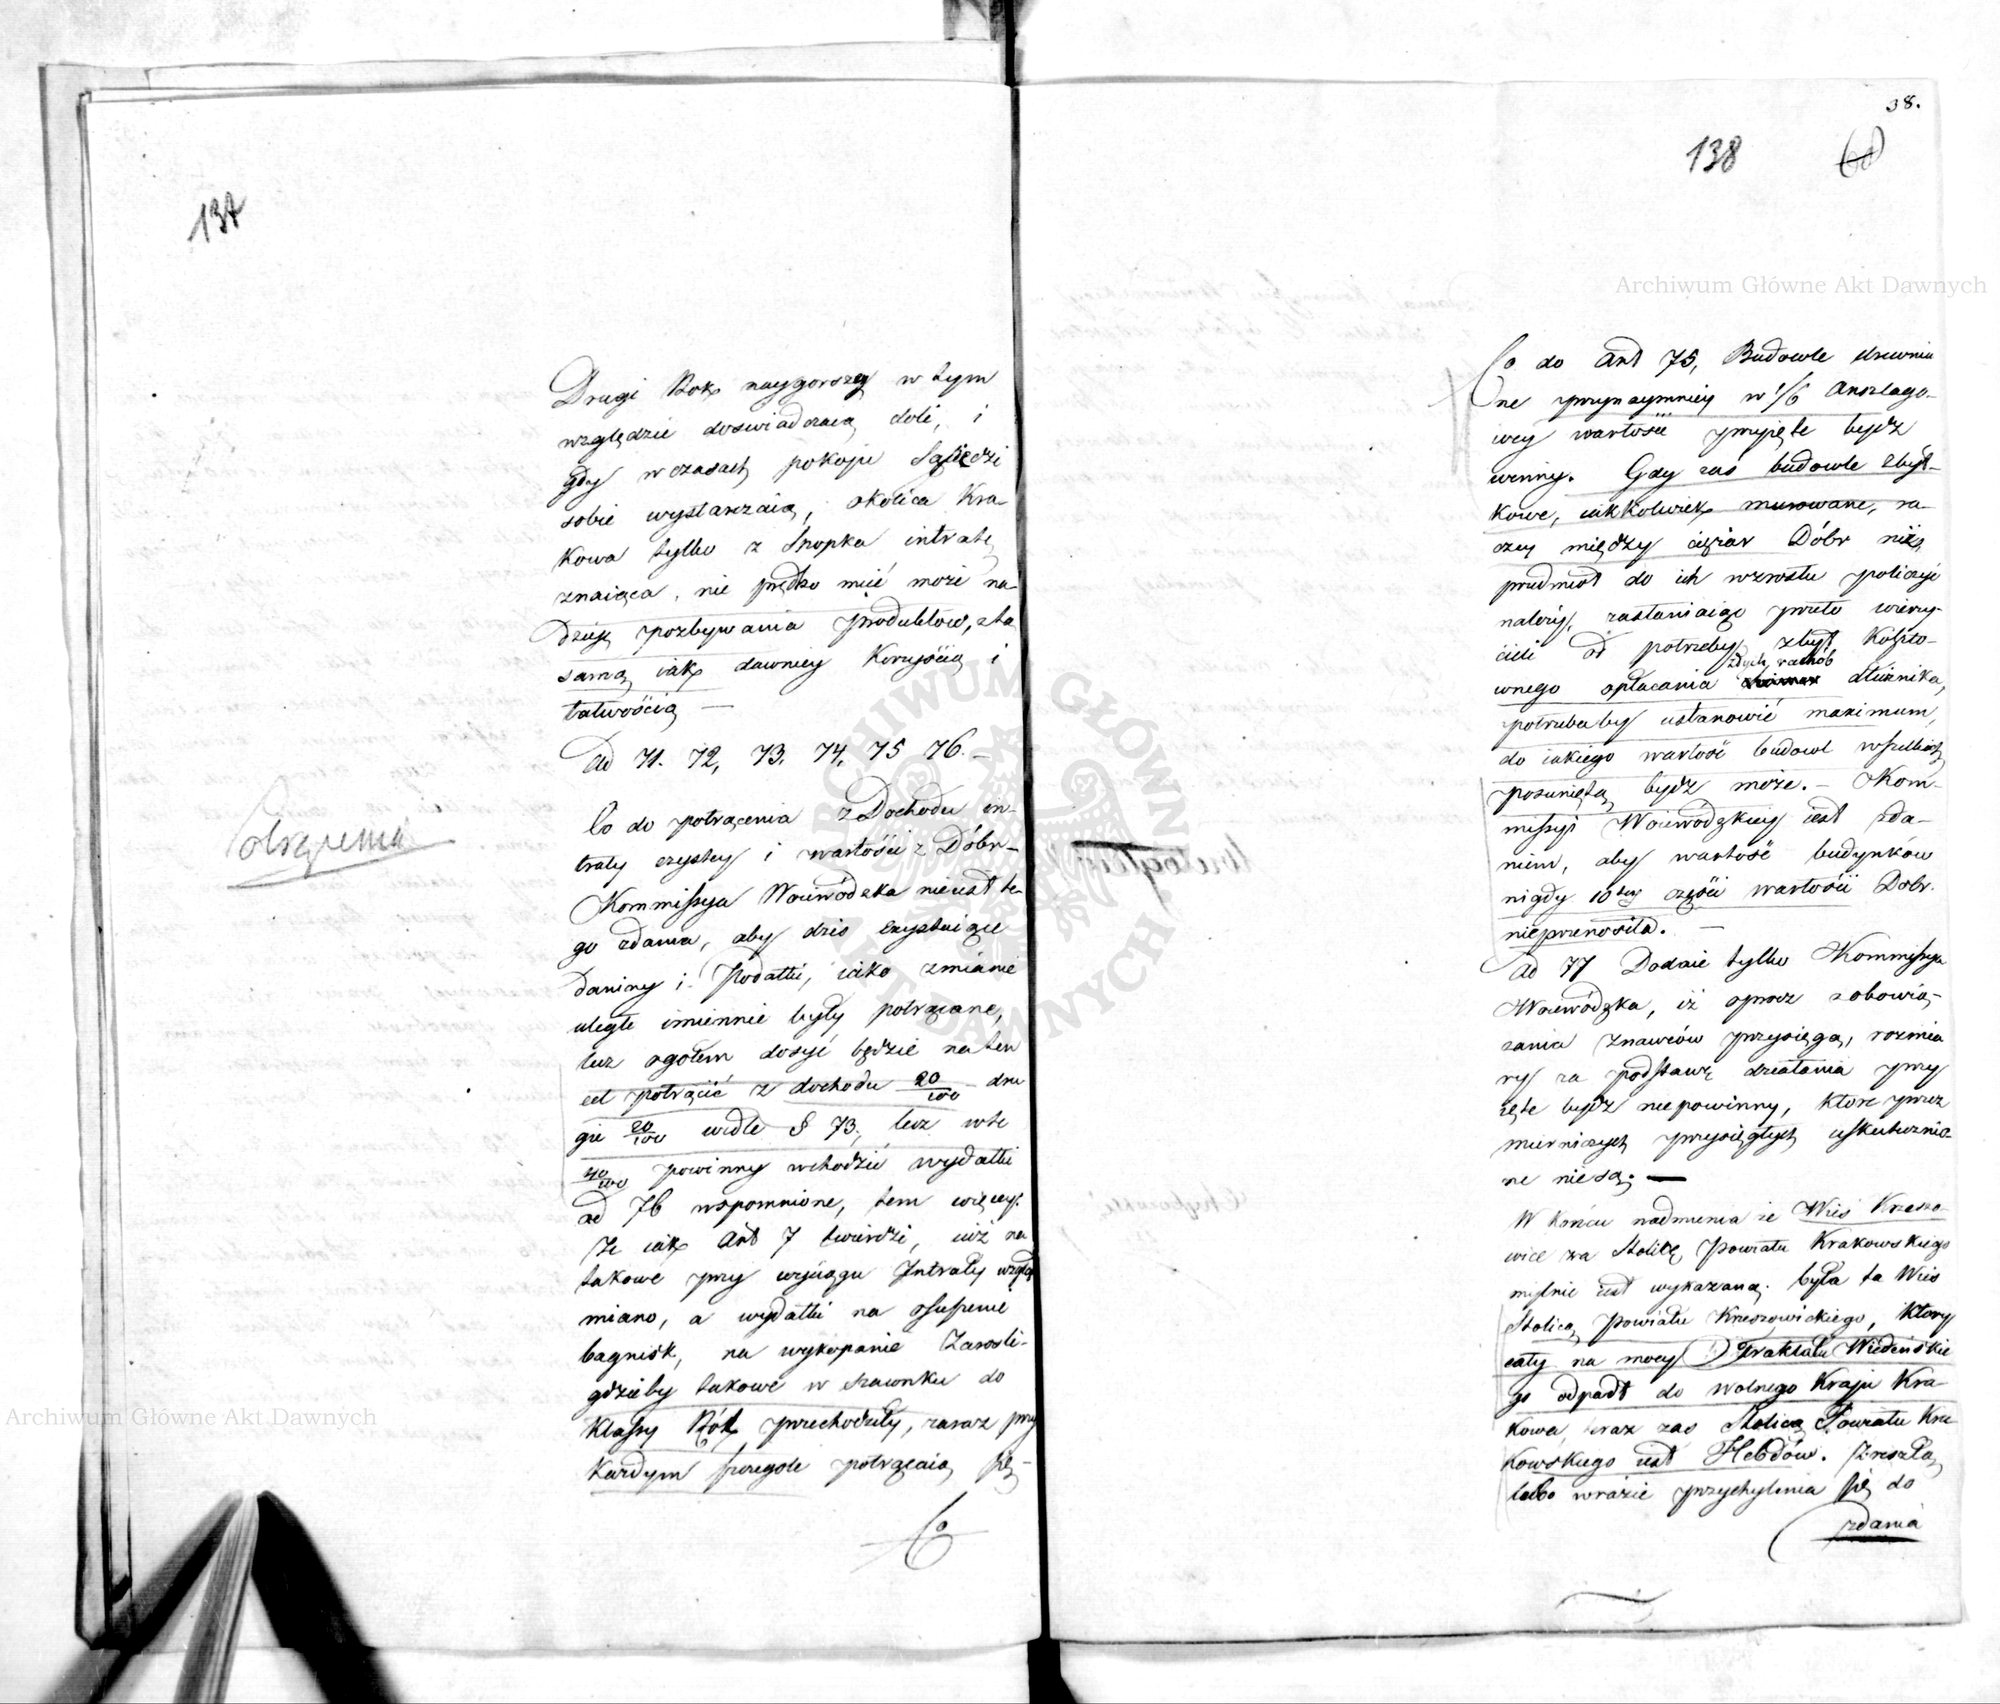 137
Drugi Rok naygorszey w tym
względzie doswiadczaią doli, i
gdy w czasach pokoju Sąsiedzi
sobie wystarczaią, okolica Kra-
kowa tylko z Snopka intratę
znaiąca, nie prędko mieć może na-
dzieję pozbywania produktow, z tą
samą iak dawniey Korzyścią i
łatwością —
Ad 71. 72, 73, 74, 75 76. —
potrącenia
Co do potrącenia z Dochodu in-
traty czystey i wartości z Dóbr —
Kommissya Woiewódzka nie iest te-
go zdania, aby dzis exystuiące
daniny i Podatki, iako zmianie
uległe imiennie były potrącane,
lecz ogołem dosyć będzie na ten
cel potrącić z dochodu 20/100 dru
gie 20/100 wedle § 73, lecz w te
40/100 powinny wchodzić wydatki
ad 76 wspomnione, tem więcey
że iak Art 7 twierdzi, iuż na
takowe przy wyciągu Intraty wzglę
miano, a wydatki na osuszenie
bagnisk, na wykopanie Zarośli-
gdzieby takowe w szacunku do
Klassy Ról przechodziły, zaraz przy
Każdym szczegole potrącaią się —
Co
38.
138
Co do Art 75, Budowle drewnia
ne przynaymniey w 1/6 Anszlago-
wey wartości przyięte bydź
winny. Gdy zas budowle zbyt-
kowe, iakkolwiek murowane, ra-
czey między ciężar Dóbr niż
przedmiot do ich wzrostu policzyć
należy, zasłaniaiąc przeto wierzy-
cieli od potrzeby zbyt Koszto-
wnego opłacania złych rachub dłużnika,
potrzeba by ustanowić maximum,
do iakiego wartość budowl wszelkich
posunięta bydź może. — Kom-
missyi Woiewódzkiey iest zda-
niem, aby wartość budynków
nigdy 10tey części wartości Dobr
nieprzenosiła. —
Ad 77 Dodaie tylko Kommissya
Woiewódzka, iż oprocz zobowią-
zania znawców przysięgą, rozmia
ry za podstawę działania przy
ięte bydź nie powinny, ktore przez
mierniczych przysięgłych uskutecznio-
ne nie są. —
W końcu nadmienia że Wieś Krzeszo-
wice za Stolicę Powiatu Krakowskiego
mylnie iest wykazaną. była ta Wieś
Stolicą Powiatu Krzeszowickiego, ktory
cały na mocy Traktatu Wiedeńskie
go odpadł do wolnego Kraju Kra-
kowa, teraz zas Stolicą Powiatu Kra
kowskiego iest Hebdów. Zresztą
lubo w razie przychylenia się do
zdania
Archiwum Główne Akt Dawnych
Archiwum Główne Akt Dawnych
ARCHIWUM GŁÓWNE AKT DAWNYCH